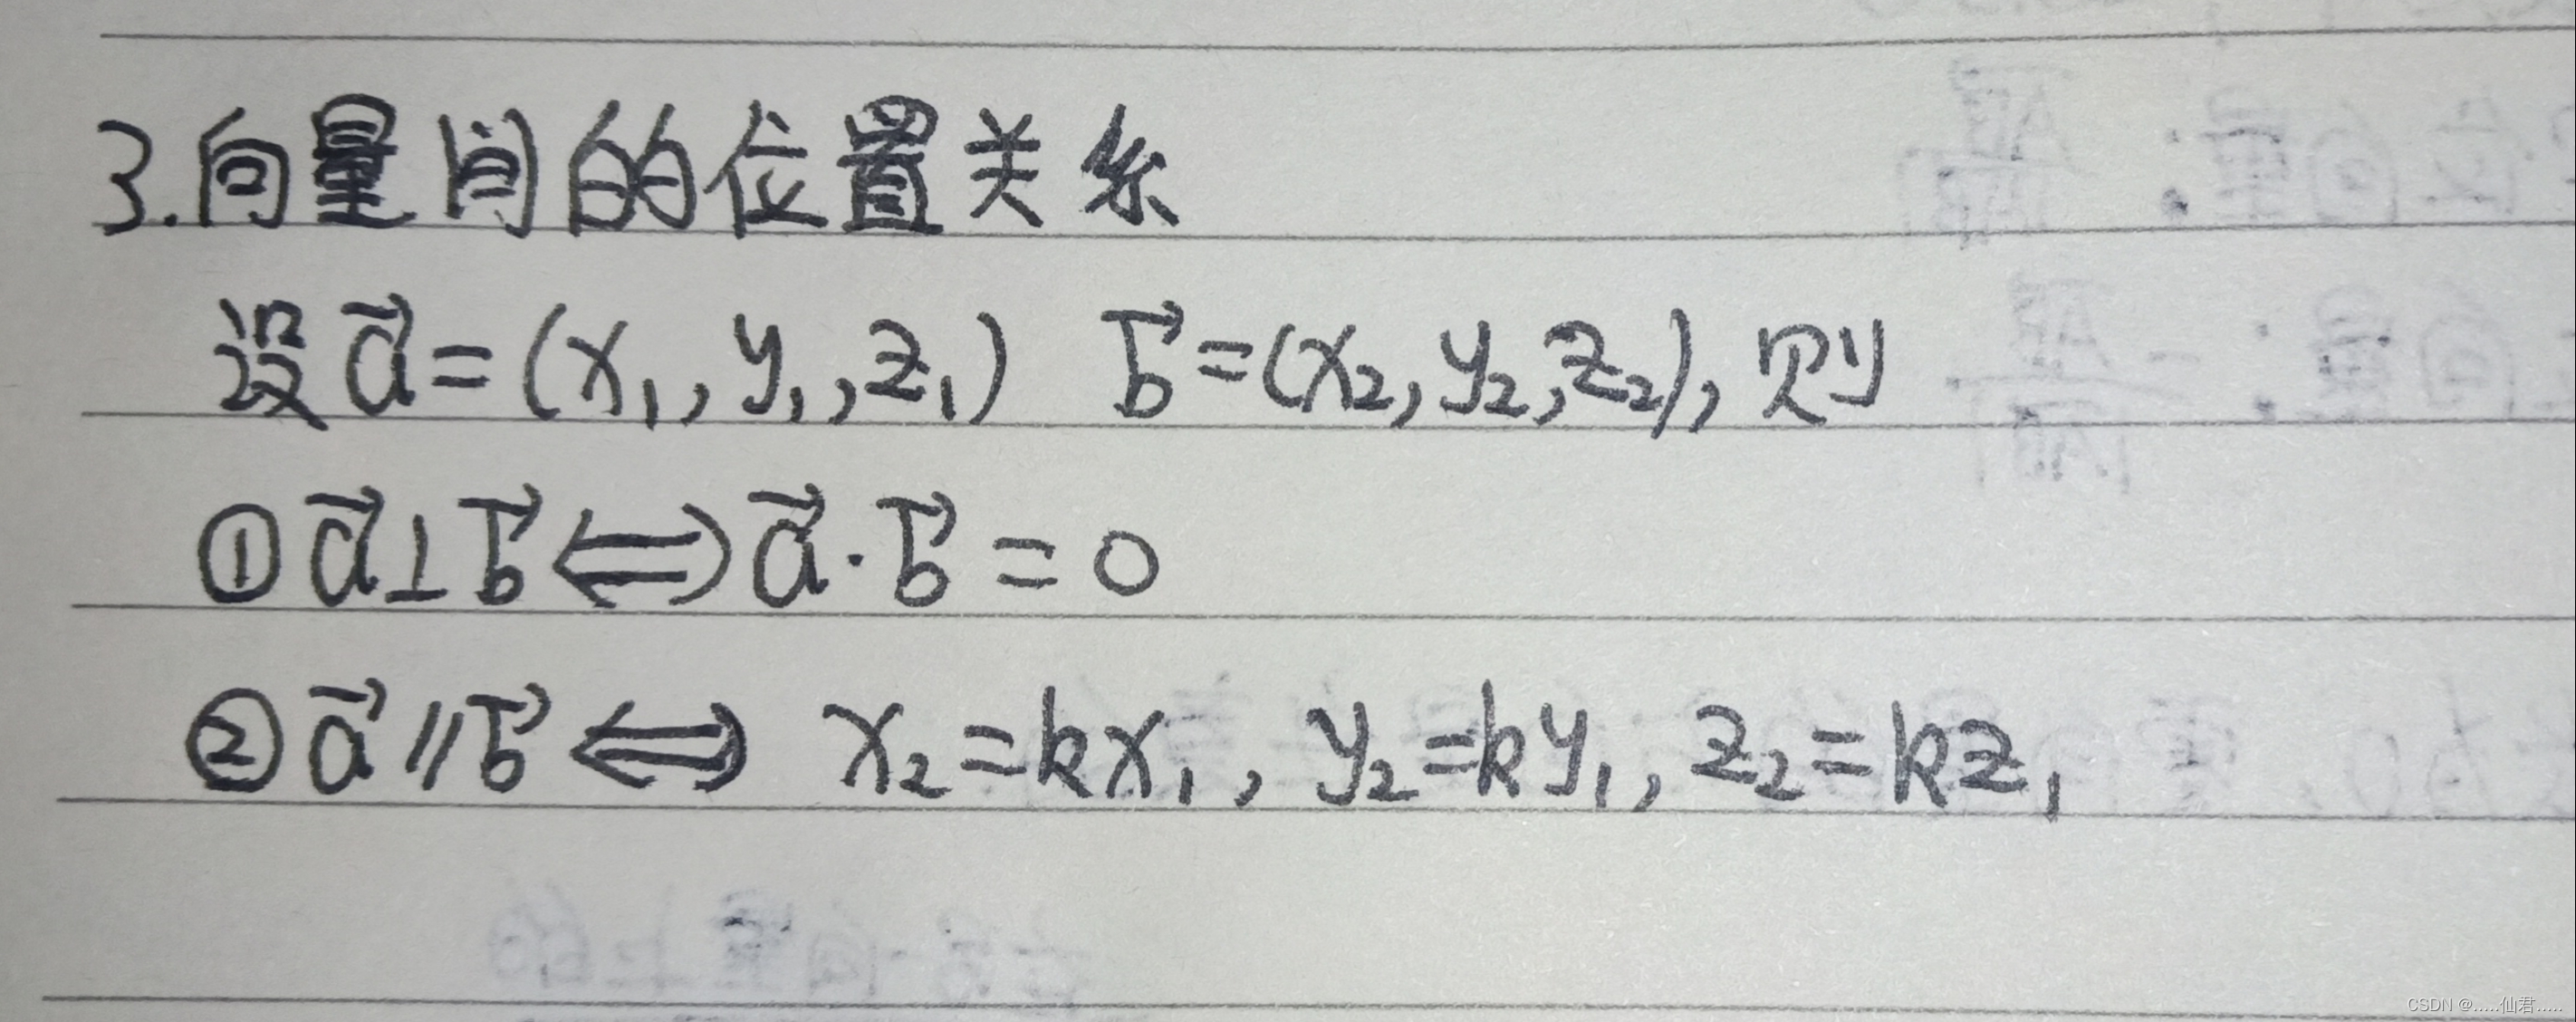 3.向量间的位置关系
设 a⃗=(x₁,y₁,z₁) b⃗=(x₂,y₂,z₂),则
①a⃗⊥b⃗⟺a⃗·b⃗=0
②a⃗∥b⃗⟺x₂=kx₁,y₂=ky₁,z₂=kz₁
CSDN @.....仙君.....